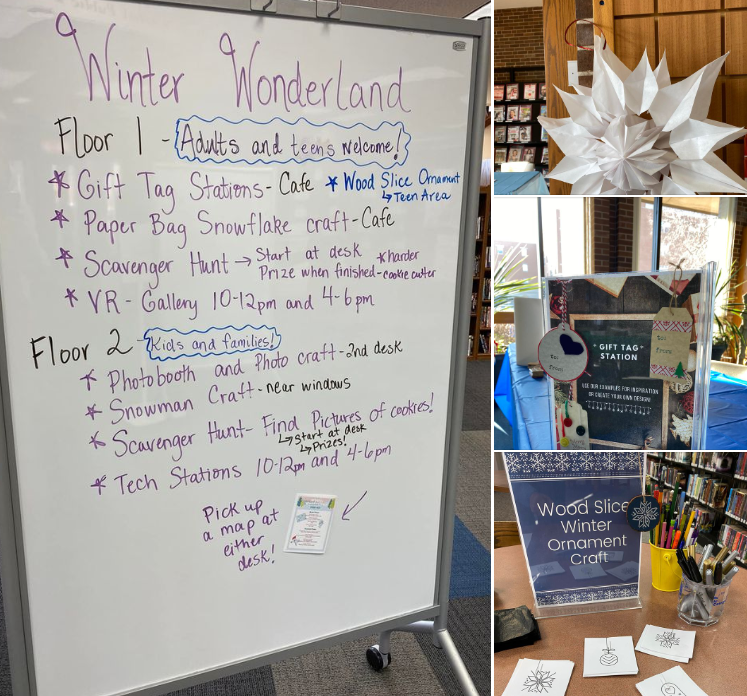 Winter Wonderland
Floor 1 - Adults and teens welcome!
* Gift Tag Stations - Cafe * Wood Slice Ornament
↳ Teen Area
* Paper Bag Snowflake craft - Cafe
* Scavenger Hunt → Start at desk *harder
Prize when finished - cookie cutter
* VR - Gallery 10-12pm and 4-6pm
Floor 2 - Kids and families!
* Photobooth and Photo craft - 2nd desk
* Snowman Craft - near windows
* Scavenger Hunt - Find Pictures of cookies!
↳ Start at desk
↳ Prizes!
* Tech Stations 10-12pm and 4-6pm
Pick up
a map at
either
desk!
* GIFT TAG *
STATION
USE OUR EXAMPLES FOR INSPIRATION
OR CREATE YOUR OWN DESIGN!
To:
From:
To:
From:
Wood Slice
Winter
Ornament
Craft